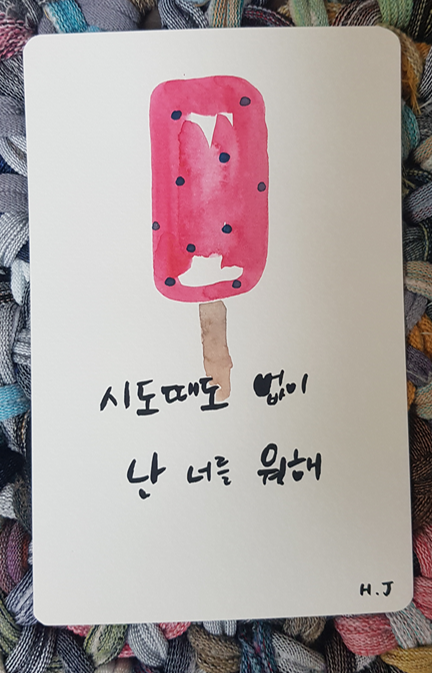 시도때도 없이
난 너를 원해
H.J